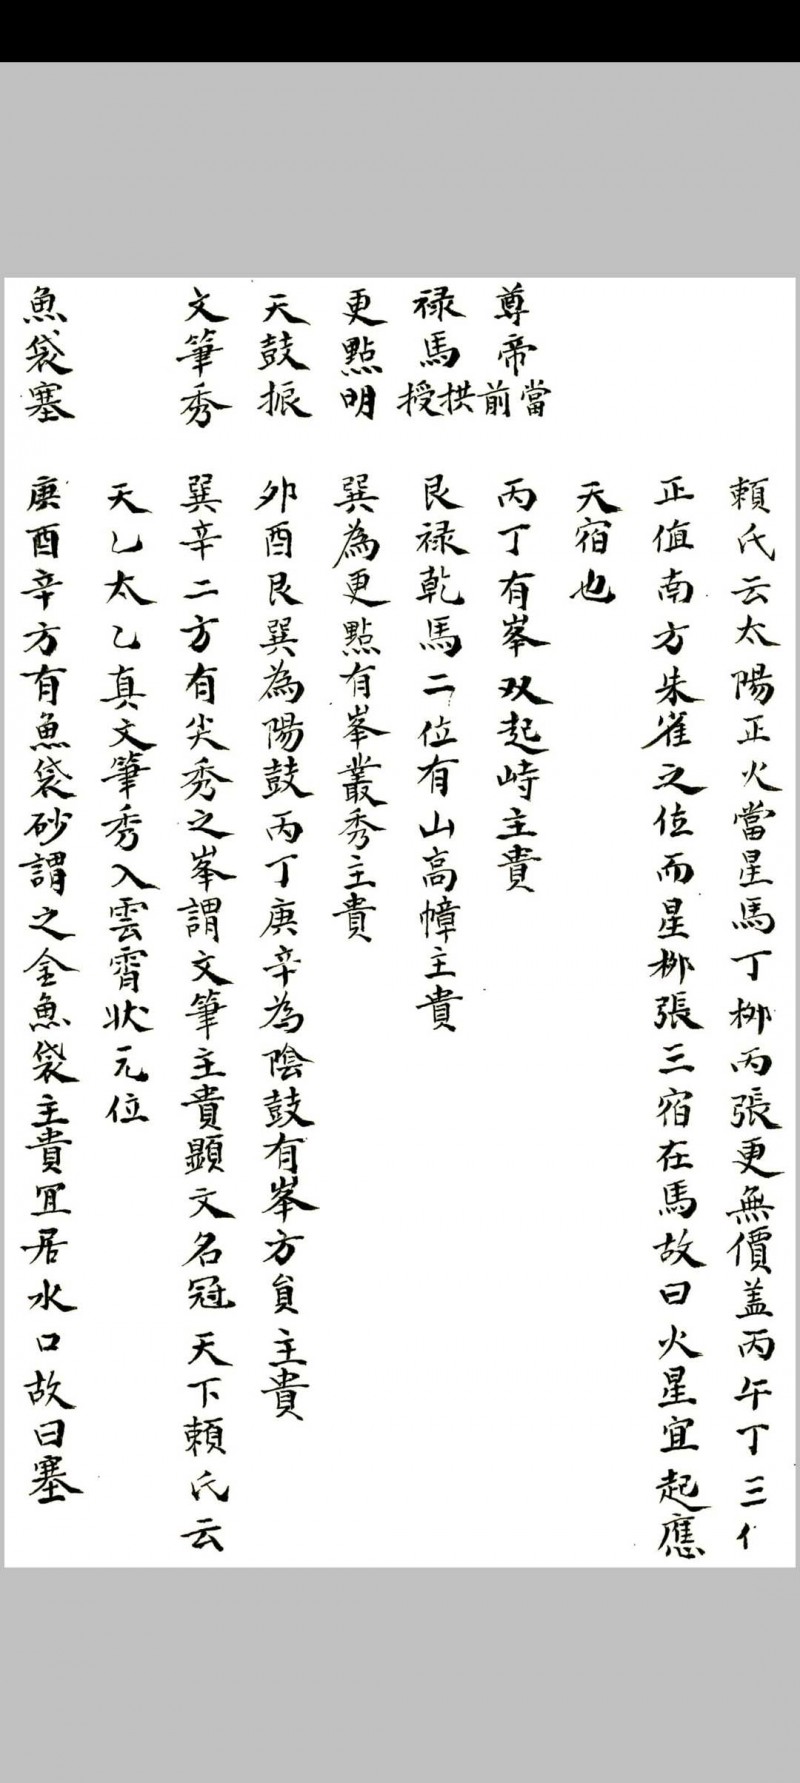 賴氏云太陽正火當星馬丁柳丙張更無價盖丙午丁三亻
正值南方朱雀之位而星柳張三宿在馬故曰火星宜起應
天宿也
尊帝當前 丙丁有峯双起峙主貴
禄馬拱授 艮禄乾馬二位有山高幛主貴
更點明 巽為更點有峯叢秀主貴
天鼓振 卯酉艮巽為陽鼓丙丁庚辛為陰鼓有峯方負主貴
文筆秀 巽辛二方有尖秀之峯謂文筆主貴顯文名冠天下賴氏云
天乙太乙真文筆秀入雲霄状元位
魚袋塞 庚酉辛方有魚袋砂謂之金魚袋主貴冝居水口故曰塞